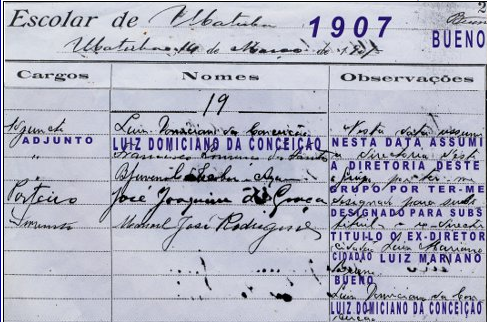 Escolar de Ubatuba 1907 2
Ubatuba 14 de Março de 1907 BUENO
Cargos Nomes Observações
19
Adjuncto Luiz Domiciano da Conceição Nesta data assumi
ADJUNTO LUIZ DOMICIANO DA CONCEIÇÃO NESTA DATA ASSUMI
" Francisco a directoria deste
A DIRETORIA DESTE
" Grupo por ter-me
GRUPO POR TER-ME
Porteiro José Joaquim de Graça designado para subs
DESIGNADO PARA SUBS
Servente Manoel José Rodrigues titui o ex-director
TITUILO O EX-DIRETOR
cidadão Luiz Mariano
CIDADÃO LUIZ MARIANO
Bueno
BUENO
Luiz Domiciano da Con
LUIZ DOMICIANO DA CONCEIÇÃO
ceição